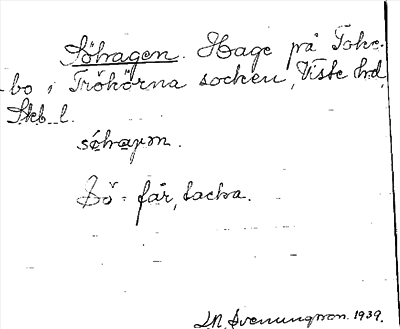 Söhagen. Hage på Toke-
bo i Tråkärna socken, Viste hd,
Skb. l.
Sö = får, tacka.
Svenungsson. 1939.